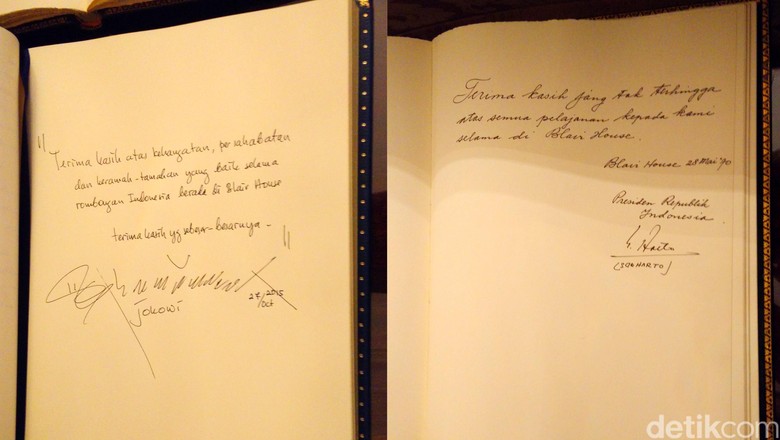 "Terima kasih atas kehangatan, persahabatan
dan keramah-tamahan yang baik selama
rombongan Indonesia berada di Blair House
terima kasih yg sebesar-besarnya - "
Jokowi
27/Oct 2015
Terima kasih jang tak terhingga
atas semua pelajanan kepada kami
selama di Blair House.
Blair House 28 Mai '70
Presiden Republik
Indonesia
(SOEHARTO)
detikcom